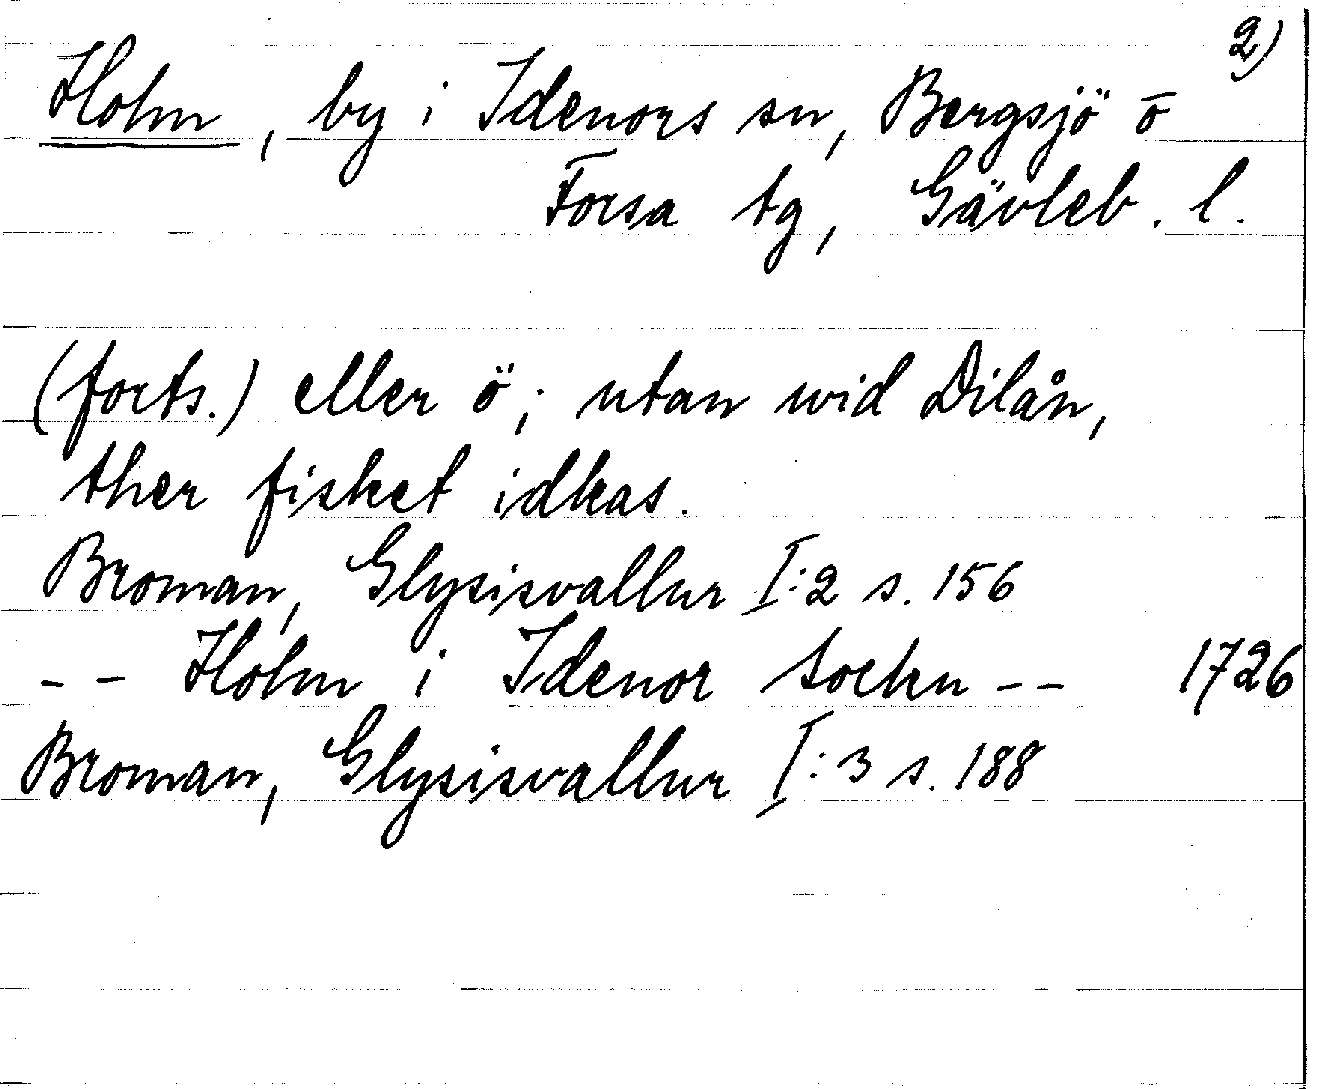 2)
Holm, by i Idenors sn, Bergsjö o
Forsa tg, Gävleb. l.
(forts.) eller ö; utan wid Dilån,
ther fisket idkas.
Broman, Glysisvallur I:2 s. 156
-- Holm i Idenor sockn -- 1726
Broman, Glysisvallur I:3 s. 188